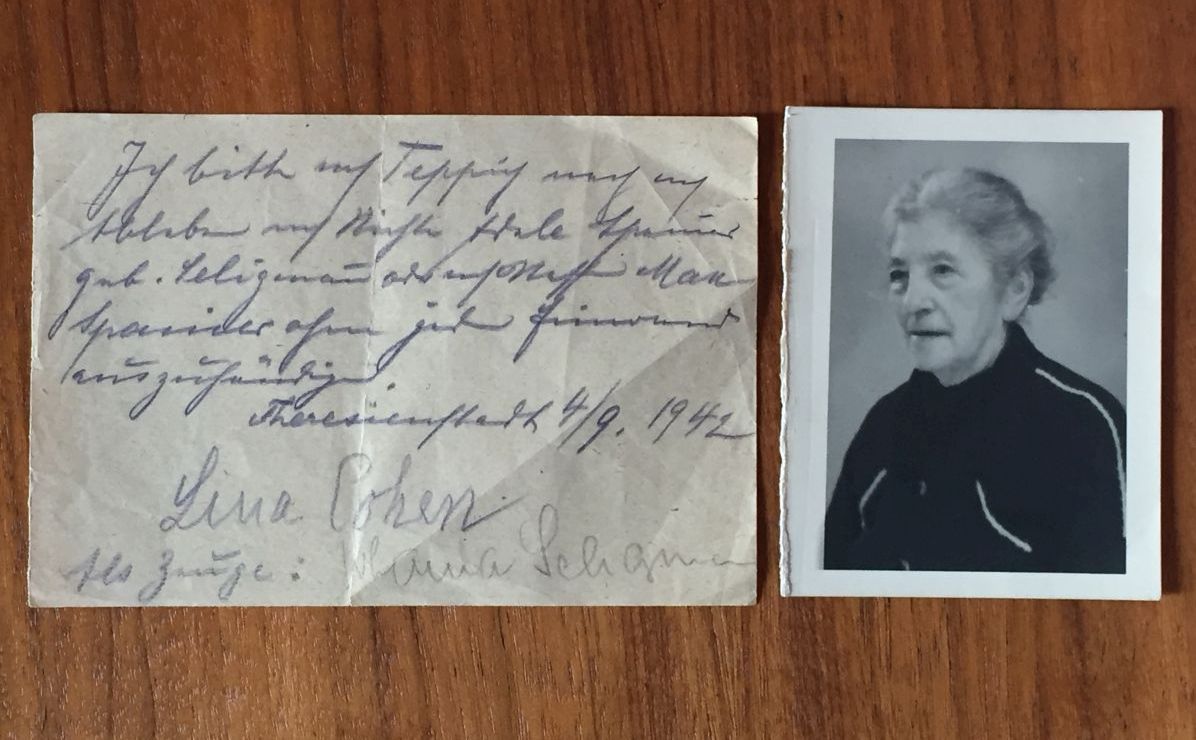 Ich bitte m/ Teppich nach m/
Ableben m/ Nichte Adele Spanier
geb. Seligmann oder m/ Neffen Max
Spanier ohne jeden Einwand
auszuhändigen.
Theresienstadt 4/9. 1942
Lina Cohen
Als Zeuge: Seligmann